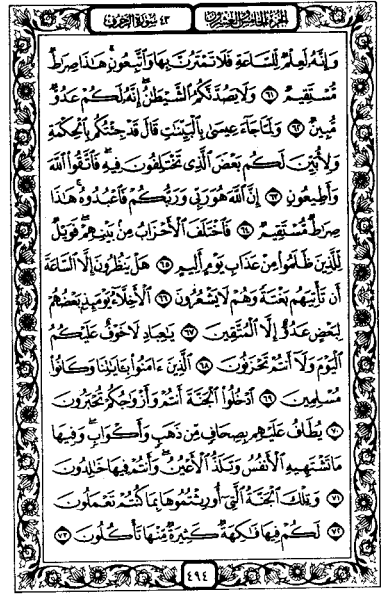 الجزء الخامس والعشرون ٤٣ سورة الزخرف
وَإِنَّهُ لَعِلْمٌ لِّلسَّاعَةِ فَلَا تَمْتَرُنَّ بِهَا وَاتَّبِعُونِ ۚ هَٰذَا صِرَاطٌ
مُّسْتَقِيمٌ ٦١ وَلَا يَصُدَّنَّكُمُ الشَّيْطَانُ ۖ إِنَّهُ لَكُمْ عَدُوٌّ
مُّبِينٌ ٦٢ وَلَمَّا جَاءَ عِيسَىٰ بِالْبَيِّنَاتِ قَالَ قَدْ جِئْتُكُم بِالْحِكْمَةِ
وَلِأُبَيِّنَ لَكُم بَعْضَ الَّذِي تَخْتَلِفُونَ فِيهِ ۖ فَاتَّقُوا اللَّهَ
وَأَطِيعُونِ ٦٣ إِنَّ اللَّهَ هُوَ رَبِّي وَرَبُّكُمْ فَاعْبُدُوهُ ۚ هَٰذَا
صِرَاطٌ مُّسْتَقِيمٌ ٦٤ فَاخْتَلَفَ الْأَحْزَابُ مِن بَيْنِهِمْ ۖ فَوَيْلٌ
لِّلَّذِينَ ظَلَمُوا مِنْ عَذَابِ يَوْمٍ أَلِيمٍ ٦٥ هَلْ يَنظُرُونَ إِلَّا السَّاعَةَ
أَن تَأْتِيَهُم بَغْتَةً وَهُمْ لَا يَشْعُرُونَ ٦٦ الْأَخِلَّاءُ يَوْمَئِذٍ بَعْضُهُمْ
لِبَعْضٍ عَدُوٌّ إِلَّا الْمُتَّقِينَ ٦٧ يَا عِبَادِ لَا خَوْفٌ عَلَيْكُمُ
الْيَوْمَ وَلَا أَنتُمْ تَحْزَنُونَ ٦٨ الَّذِينَ ءَامَنُوا بِآيَاتِنَا وَكَانُوا
مُسْلِمِينَ ٦٩ ادْخُلُوا الْجَنَّةَ أَنتُمْ وَأَزْوَاجُكُمْ تُحْبَرُونَ
٧٠ يُطَافُ عَلَيْهِم بِصِحَافٍ مِّن ذَهَبٍ وَأَكْوَابٍ ۖ وَفِيهَا
مَا تَشْتَهِيهِ الْأَنفُسُ وَتَلَذُّ الْأَعْيُنُ ۖ وَأَنتُمْ فِيهَا خَالِدُونَ
٧١ وَتِلْكَ الْجَنَّةُ الَّتِي أُورِثْتُمُوهَا بِمَا كُنتُمْ تَعْمَلُونَ
٧٢ لَكُمْ فِيهَا فَاكِهَةٌ كَثِيرَةٌ مِّنْهَا تَأْكُلُونَ ٧٣
٤٩٤